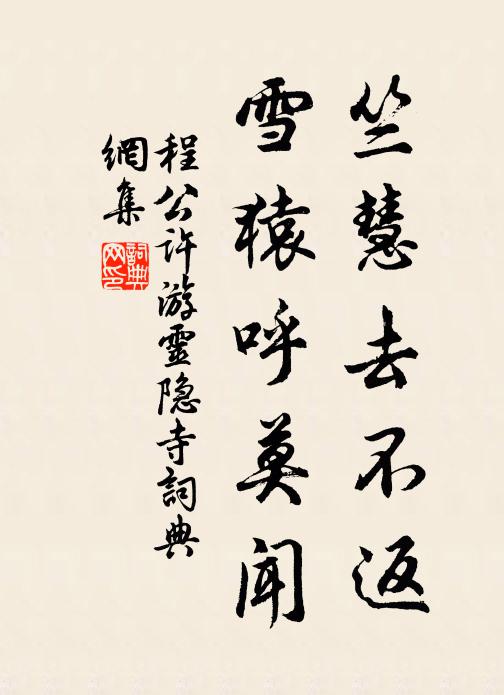 竺慧去不返
雪猿呼莫闻
程公许游靈隐寺詞典
網集
詞典网印